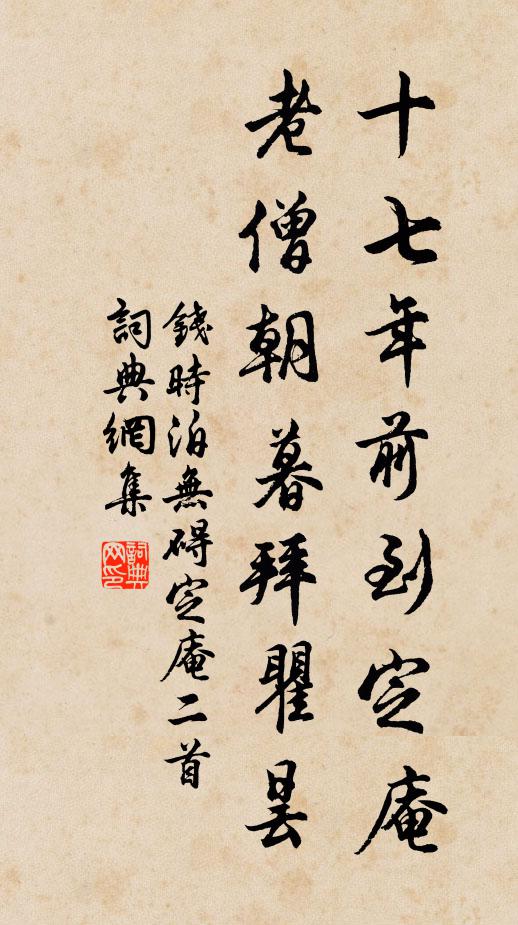 十七年前到定庵
老僧朝暮拜瞿昙
錢時泊無碍定庵二首
詞典網集
詞典網印